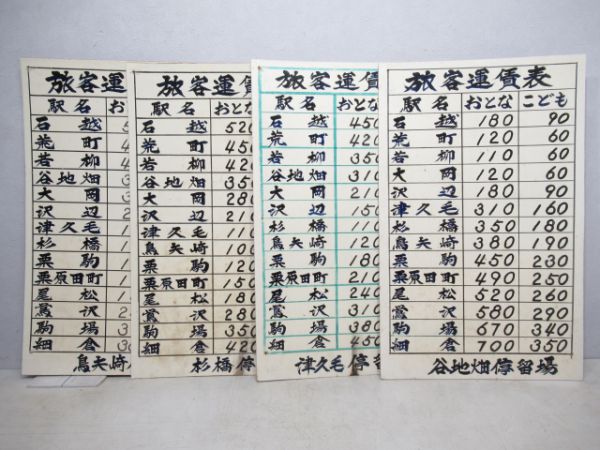 旅客運
駅名 お
石越
荒町
若柳
谷地畑
大岡
沢辺
津久毛
杉橋
栗駒
栗原田町
尾松
鶯沢
駒場
細倉
鳥矢崎
旅客運
駅名 おとな
石越 520
荒町 450
若柳 420
谷地畑 350
大岡 280
沢辺 210
津久毛 110
鳥矢崎 100
栗駒 120
栗原田町 150
尾松 180
鶯沢 280
駒場 350
細倉 420
杉橋停
旅客運賃
駅名 おとな
石越 450
荒町 420
若柳 350
谷地畑 310
大岡 210
沢辺 150
杉橋 110
鳥矢崎 120
栗駒 180
栗原田町 210
尾松 240
鶯沢 310
駒場 380
細倉 450
津久毛停留
旅客運賃表
駅名 おとな こども
石越 180 90
荒町 120 60
若柳 110 60
大岡 120 60
沢辺 180 90
津久毛 310 160
杉橋 350 180
鳥矢崎 380 190
栗駒 450 230
栗原田町 490 250
尾松 520 260
鶯沢 580 290
駒場 670 340
細倉 700 350
谷地畑停留場